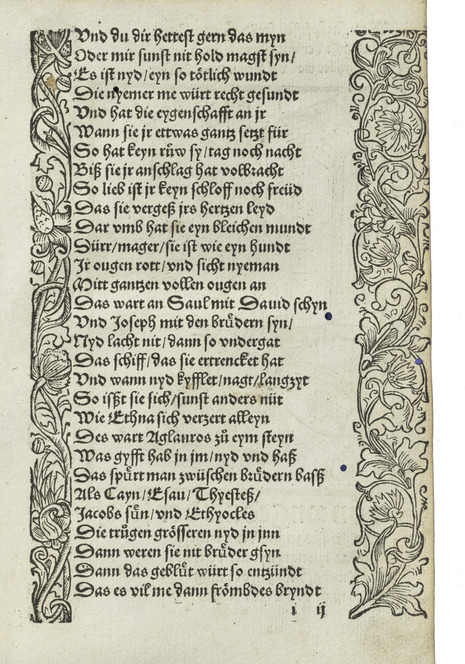 Vnd du dir hettest gern das myn
Oder mir sunst nit hold magst syn/
Es ist nyd/eyn so toͤtlich wundt
Die nyemer me würt recht gesundt
Vnd hat die eygenschafft an jr
Wann sie jr ettwas gantz setzt für
So hat keyn rüw sy/tag noch nacht
Biß sie jr anschlag hat volbracht
So lieb ist jr keyn schloff noch freüd
Das sie vergeß jrs hertzen leyd
Dar vmb hat sie eyn bleichen mundt
Dürr/mager/sie ist wie eyn hundt
Jr ougen rott/vnd sicht nyeman
Mitt gantzen vollen ougen an
Das wart an Saul mit Dauid schyn
Vnd Joseph mit den bruͤdern syn/
Nyd lacht nit/dann so vndergat
Das schiff/das sie ertrencket hat
Vnd wann nyd kyfflet/nagt/langzyt
So ißßt sie sich/sunst anders nüt
Wie Ethna sich verzert alleyn
Des wart Aglauros zuͦ eym steyn
Was gyfft hab in jm/nyd vnd haß
Das spuͤrt man zwüschen bruͤdern baß
Als Cayn/Esau/Thyesteß/
Jacobs suͤn/vnd Ethyocles
Die truͦgen groͤsseren nyd in jnn
Dann weren sie nit bruͤder gsyn
Dann das gebluͤt würt so entzündt
Das es vil me dann froͤmbdes bryndt
i ij